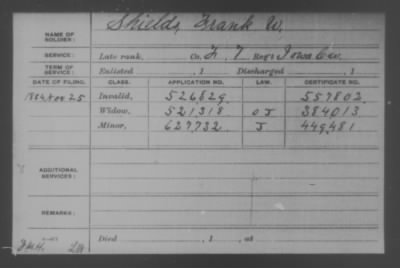 NAME OF SOLDIER: Shields, Frank W.
SERVICE: Late rank, Co. F, 7 Reg't Iowa Cav.
TERM OF SERVICE: Enlisted , 1 Discharged , 1
DATE OF FILING. CLASS. APPLICATION NO. LAW. CERTIFICATE NO.
1884 Nov 25 Invalid, 526829. 557802.
Widow, 521318 OJ 384013
Minor, 627732 J 449481
ADDITIONAL SERVICES:
REMARKS:
Died , 1 , at